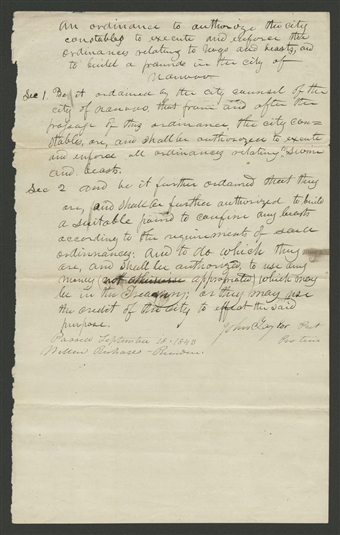 An ordinance to authorize the city
constables to execute and enforce the
ordinance relating to hogs and beasts, and
to build a pounds in the city of
Nauvoo
Sec 1 Be it ordained by the city counsel of the
city of Nauvoo, that from and after the
passage of this ordinance, the city con=
stables, are, and shall be authorized to execute
and enforce all ordinances relating to swine
and beasts.
Sec 2 And be it further ordained that they
are, and shall be further authorized to build
a suitable pound to confine any beasts
according to the requirements of such
ordinances: And to do which they
are, and shall be authorized, to use any
money (not otherwise appropriated) which may
be in the Treasury; or they may use
the credit of the City, to effect the said
purpose.
Passed September 1840
Pro tem